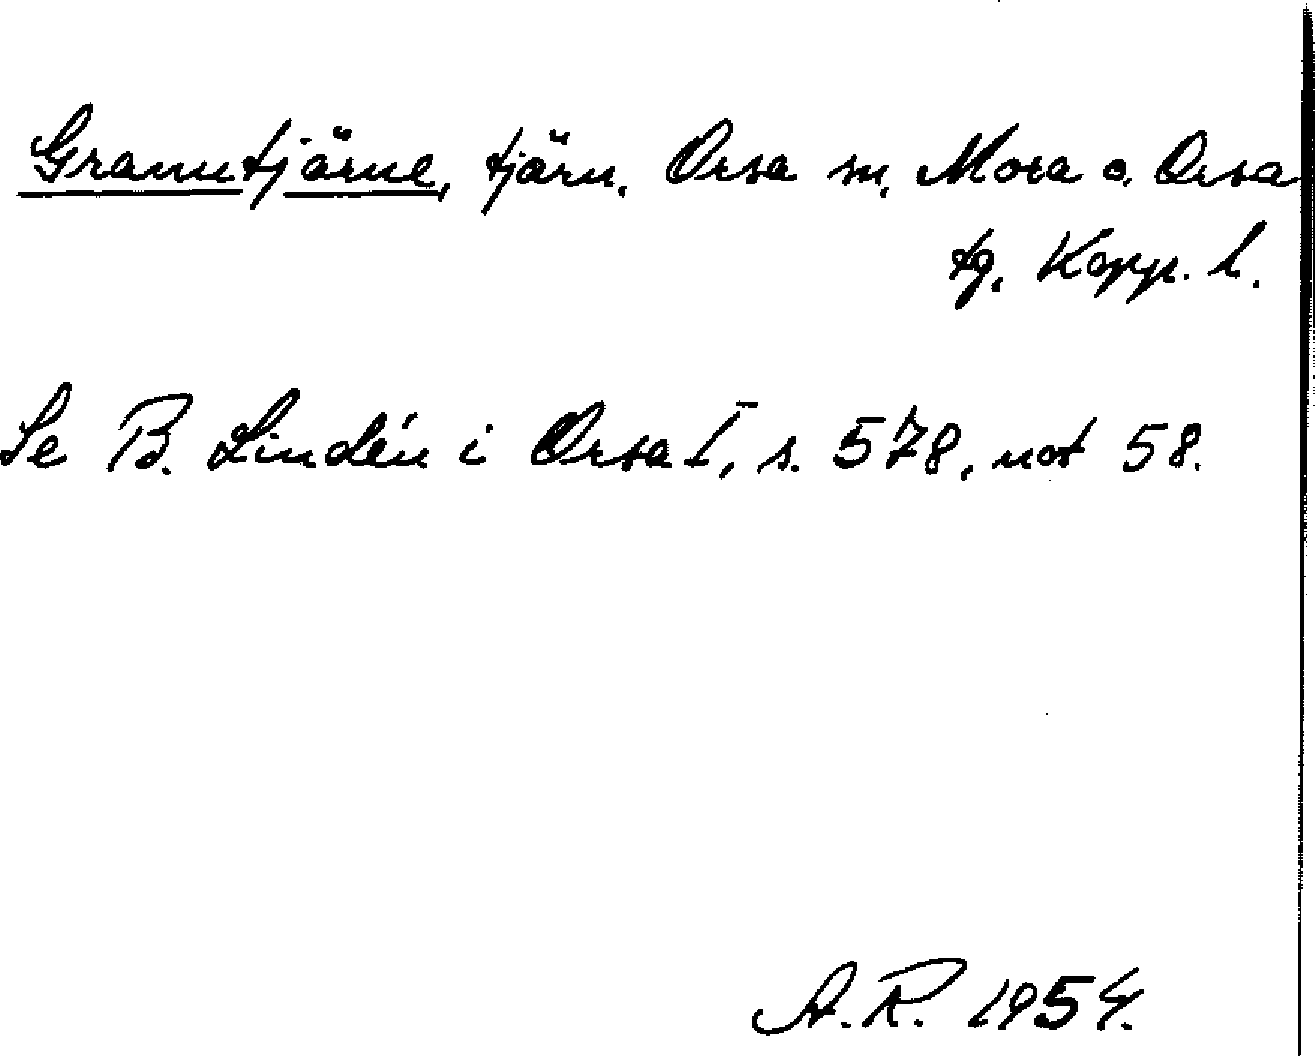 Granutjärne, tjärn, Orsa sn, Mora o. Orsa
tg, Kopp. l.
Se B. Lindén i Orsa I, s. 578, not 58.
A.R. 1954.